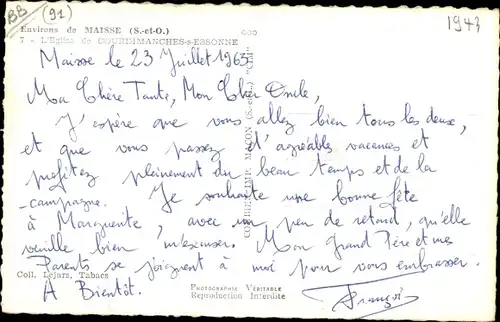 BB (91)
1943
Environs de MAISSE (S.-et-O.)
7 - L'Eglise de COURDIMANCHES-s-ESSONNE
Maisse le 23 Juillet 1963
Ma Chère Tante, Mon Cher Oncle,
J'espère que vous allez bien tous les deux,
et que vous passez d'agréables vacances et
profitez pleinement du beau temps et de la
-campagne. Je souhaite une bonne fête
à Marguerite, avec un peu de retard, qu'elle
veuille bien m'excuser. Mon Grand Père et mes
Parents se joignent à moi pour vous embrasser.
A Bientôt.
François
Coll. Lejars, Tabacs
PHOTOGRAPHIE VÉRITABLE
Reproduction Interdite
IMP. MACON (S.-et-L.) "Cim"